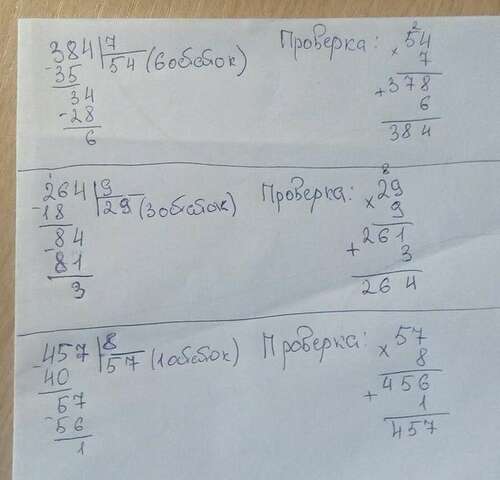 384 | 7
54 (6 остаток) Проверка: 54
-35 × 7
34 378
-28 + 6
6 384
264 | 9
29 (3 остаток) Проверка: 29
-18 × 9
84 261
-81 + 3
3 264
457 | 8
57 (1 остаток) Проверка: 57
-40 × 8
57 456
-56 + 1
1 457